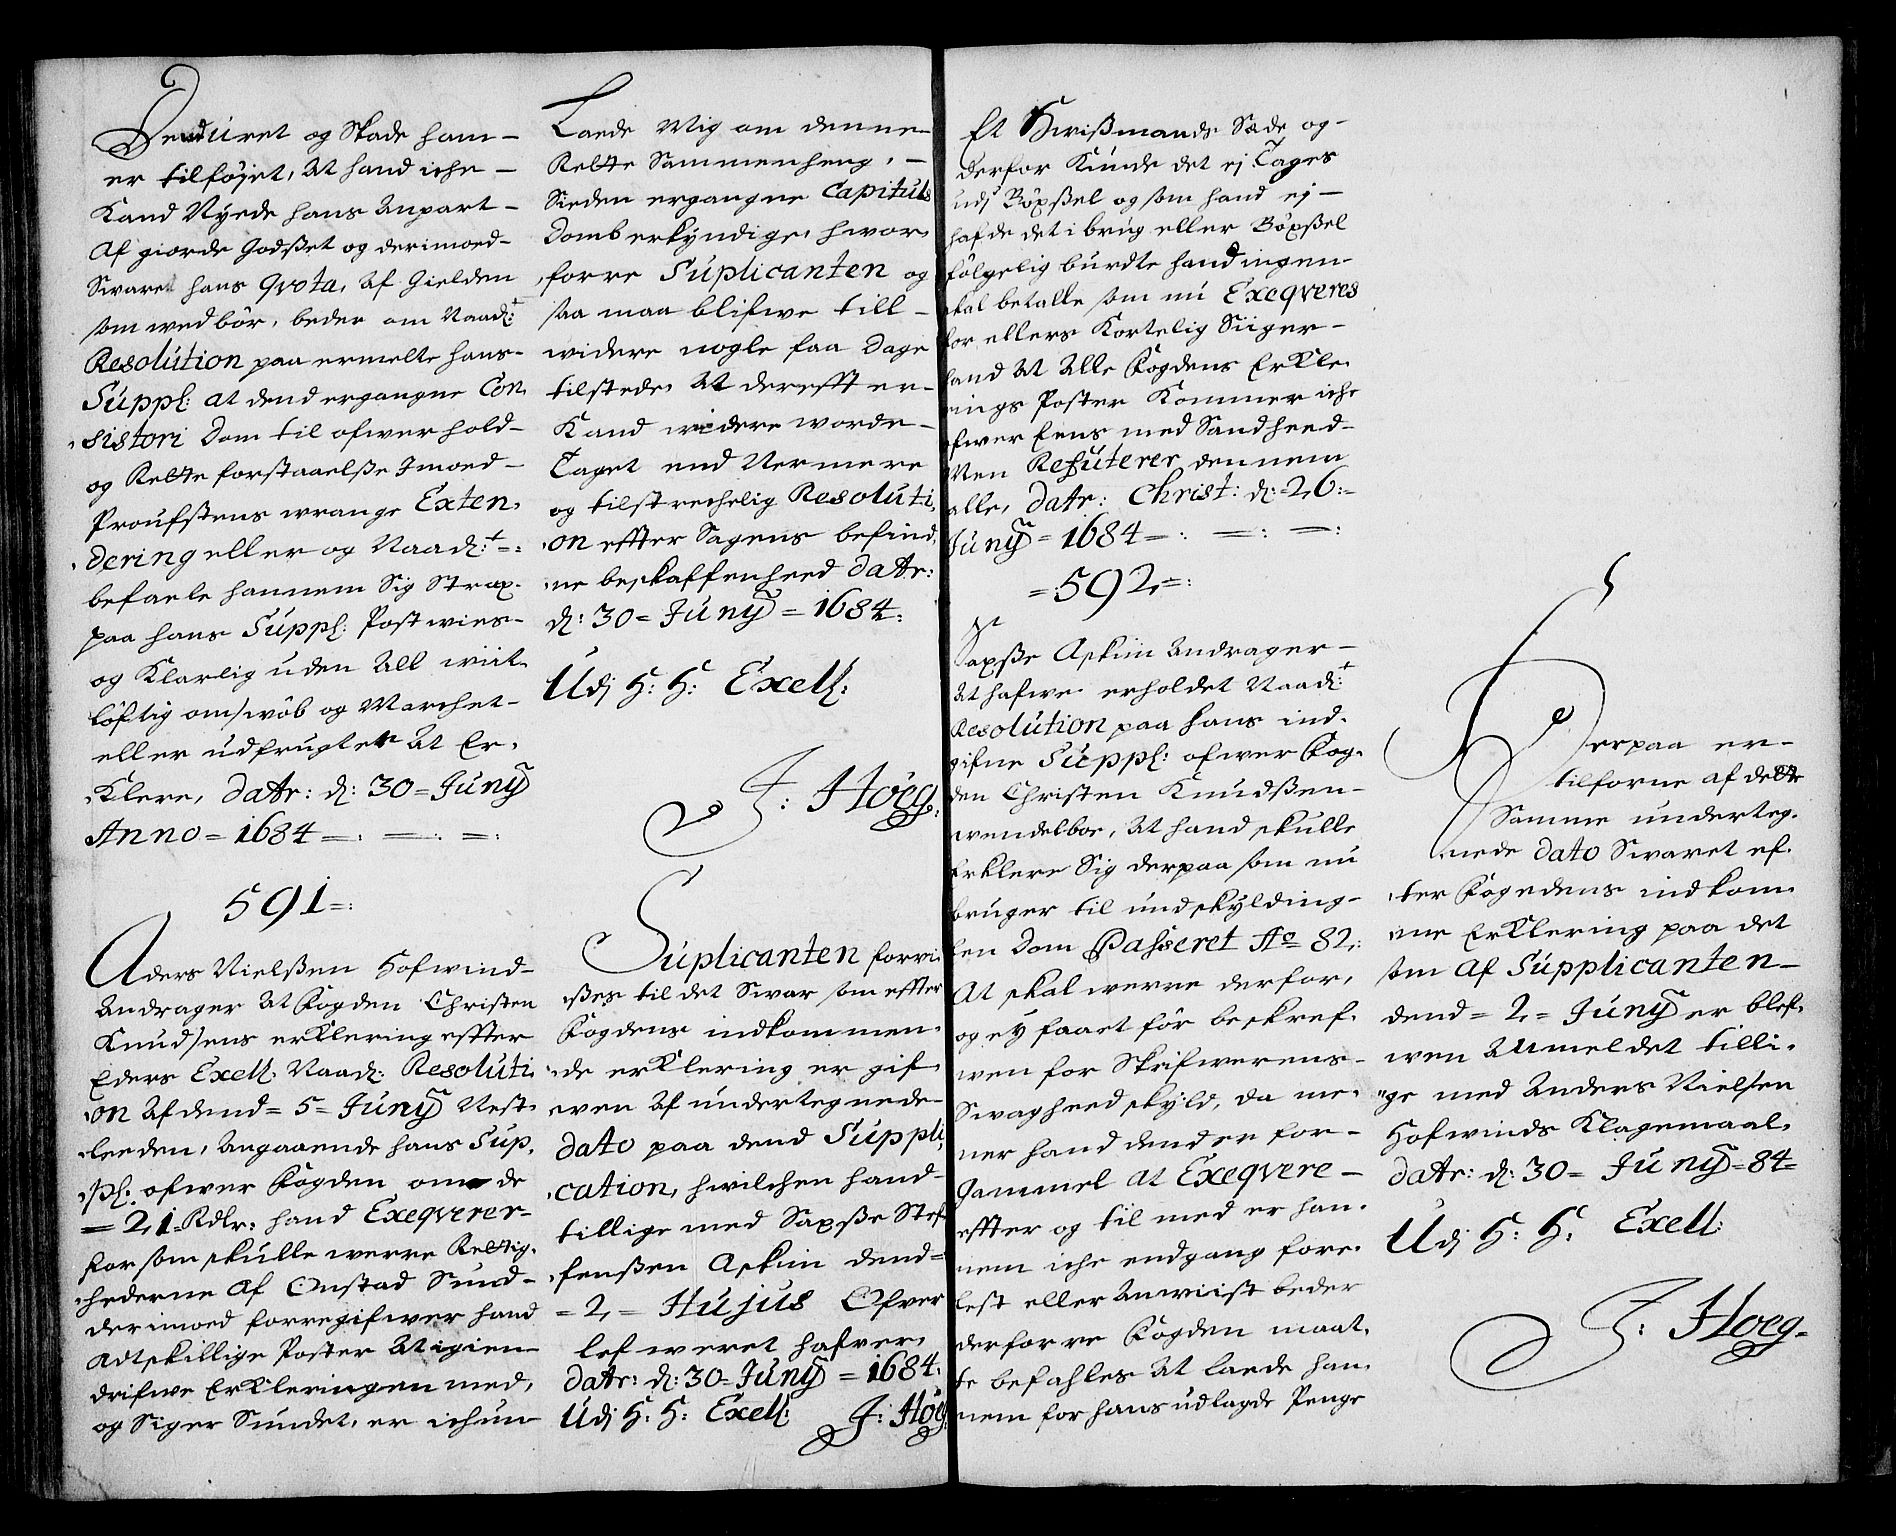 Denduret og Skade ham-
er tilföjet, At hand iche-
Kand Nyede hans Anpart-
Af giorde Godsset og derimoed-
Sware hans Qvota, Af Gielden
som wed bör, beder om Naad:
Resolution paa ermelte hans-
Suppl: at dend ergangne Con,
sistori Dom til ofwerhold-
og Rette forstaaelsse Imoed-
Proufstens wrange Exten,
dering eller og Naad:
befaele hannem Sig Strax-
paa hans Suppl: Post wies-
og Klarlig uden All wiit
löftig omswöb og Marchet-
eller udfrugter At Er,
Klere, datr: d: 30= Juny
Anno= 1684
591=:
Aders Nielssen Hofwind-
Andrager At Fogden Christen
Knudsens erklering effter
Eders Excell: Naad: Resoluti
on Af dend= 5= Juny Nest-
leeden, Angaaende hans Sup,
pl: ofwer Fogden om de
=21= Rdlr: hand Exeqverer-
for som skulle werre Rettig,
hederne Af Onstad Sund-
derimoed forregifwer hand
Adtskillige Poster At igien-
drifwe Erkleringen med,
og Siger Sundet, er ichun
Laede Mig om denne-
Rette Sammenheng,
Sieden ergangne Capituls
Domb erkyndige, hwor,
forre Suplicanten og
saa maa blifwe till-
widere nogle faa Dage
tilstede, At derefft er-
Kand widere worde-
Taget end Nermere
og tilstrechelig Resoluti,
on effter Sagens befind,
ne beskaffenheed Datr:
d: 30= Juny= 1684:
Udj H: H: Excell:
J: Höeg
Suplicanten forvi
sses til det Swar som effter
Fogdens indkommen-
de erklering er gif
even Af undertegnede-
dato paa dend Suppli,
cation, hwilchen hand-
tillige med Saxsse Stef
fenssen Askim dend=
=2= Hujus Ofver
lefweret hafver,
datr: d: 30= Juny= 1684.
Udj H: H: Excell: J: Höeg
Et Hwissmands Sæde og-
derfor Kunde det ej Tages
udj Böxssel og som hand ej-
hafde det i brug eller Böxssel
fölgelig burdte hand ingen-
skal betalle som nu Exeqveres
for ellers Kortelig Siiger-
hand At Alle Fogdens Erkle,
rings Poster Kommer iche
ofwer Eens med Sandheed-
Men Refuterer dennem
alle, datr: Christ: d: 26:-
Juny= 1684
=592=:
Saxsse Askim Andrager-
At hafwe erholdet Naad:
Resolution paa hans ind,
gifne Suppl: ofwer Fog,
den Christen Knudssen-
wendelboe, At hand skulle
Erklere Sig derpaa som nu
bruger til undskylding-
en Dom Passeret Ao 82,:
At skal werre derfor,
og ey faaet för beskref,
wen for Skrifwerens-
Swagheed skyld, da me,
ner hand dend er for-
Gammel at Exeqvere-
effter og til med er han,
nem iche endgang fore,
lest eller Anwiist beder
derforre Fogden maat,
te befahles At laede han,
nem for hans udlagde Penge
Derpaa er-
tilforne af dette
Samme underteg,
nede dato Swaret ef,
ter Fogedens indkom,
ne Erklering paa det
som Af Supplicanten-
dend= 2= Juny er blef,
wen Anmeldet tilli,
ge med Anders Nielsen
Hofwinds Klagemaal,
datr: d: 30= Juny= 84=
Udj H: H: Excell:
J: Höeg-